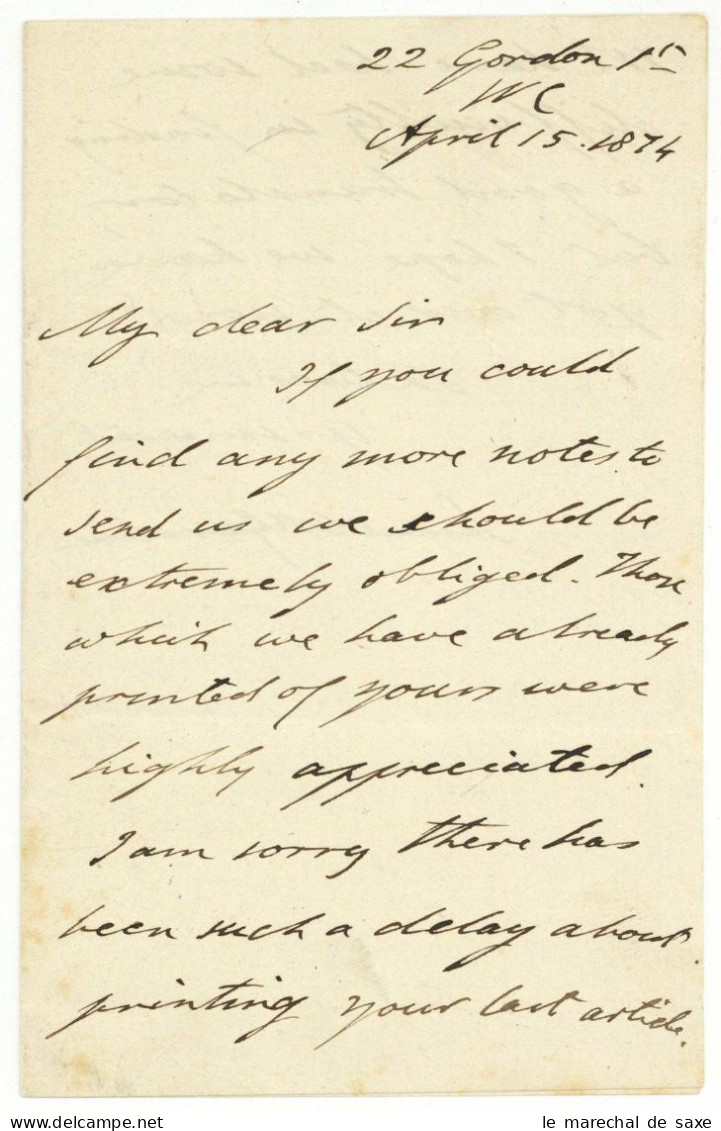 22 Gordon St
WC
April 15. 1874
My dear Sir
If you could
find any more notes to
send us we should be
extremely obliged. Those
which we have already
printed of yours were
highly appreciated.
I am sorry there has
been such a delay about
printing your last article.
le marechal de saxe